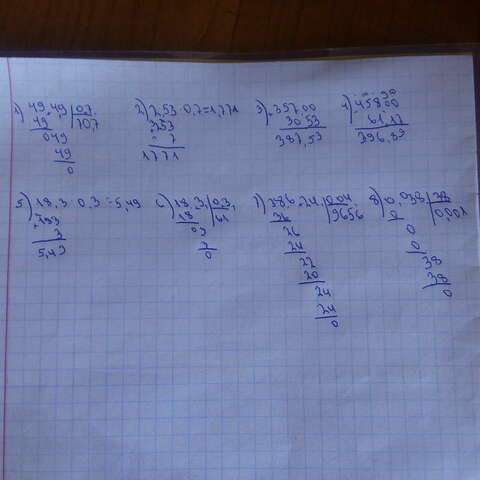 1) 49,49 | 0,7
49 | 70,7
049
49
0
2) 2,53 · 0,7 = 1,771
253
7
1771
3) 357,00
30,53
387,53
4) 458,00
61,17
396,83
5) 18,3 · 0,3 = 5,49
183
3
5,49
6) 18,3 | 0,3
18 | 61
03
3
0
7) 386,24 | 0,04
36 | 9656
26
24
22
20
24
24
0
8) 0,038 | 38
0 | 0,001
0
0
38
38
0